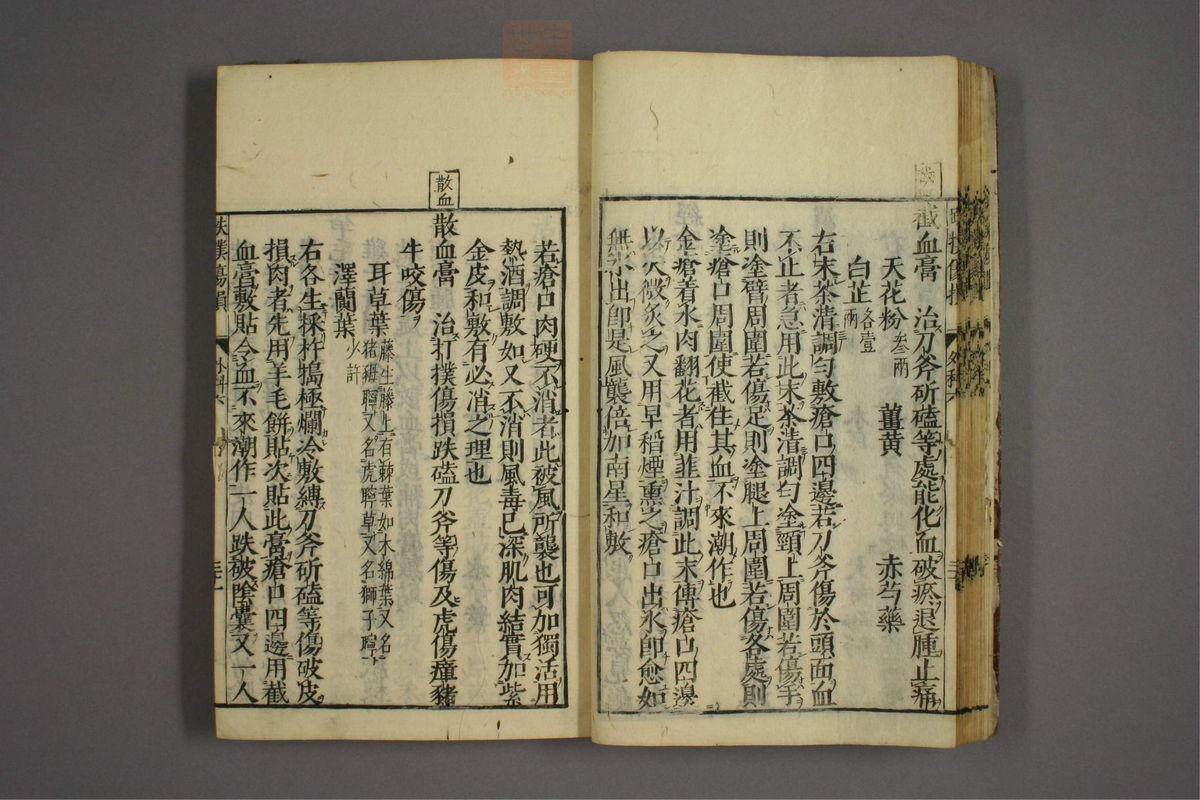 截血膏 治刀斧斫磕等處能化血破瘀退腫止痛
天花粉叁兩 薑黄 赤芍藥
白芷各壹兩
右末茶清調匀敷瘡口四邊若刀斧傷於頭面血
不止者急用此末茶清調匀塗頸上周圍若傷手
則塗臂周圍若傷足則塗腿上周圍若傷各處則
塗瘡口周圍使截住其血不來潮作也
金瘡着水肉翻花者用韮汁調此末傅瘡口四邊
以火微炙之又用早稻煙熏之瘡口出水即愈如
無水出即是風襲倍加南星和敷
若瘡口肉硬不消者此被風所襲也可加獨活用
熱酒調敷如又不消則風毒已深肌肉結實加紫
金皮和敷有必消之理也
散血
散血膏 治打撲傷損跌磕刀斧等傷及虎傷瘴豬
牛咬傷
耳草葉藤生藤上有棘葉如木綿葉又名
猪聤又名虎聤草又名獅子聤
澤蘭葉少許
右各生採杵搗極爛冷敷縛刀斧斫磕等傷破皮
損肉者先用羊毛餅貼次貼此膏瘡口四邊用截
血膏敷貼令血不來潮作一人跌破陰囊又一人
跌撲傷損 外科六